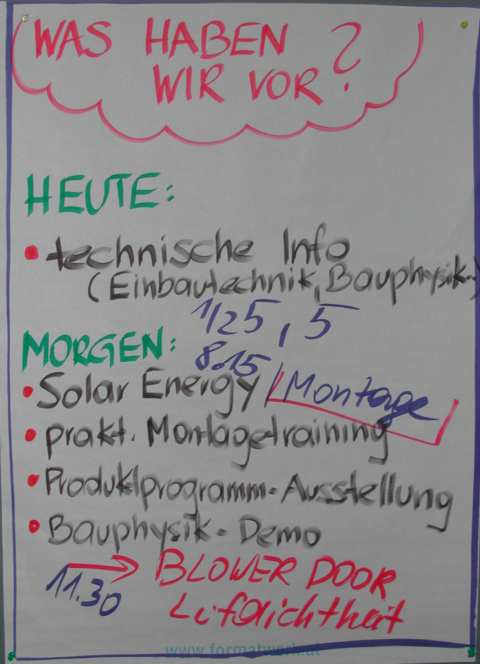 WAS HABEN
WIR VOR?
HEUTE:
• technische Info
(Einbautechnik, Bauphysik..)
1/25, 5
MORGEN: 8.15
• Solar Energy / Montage
• prakt. Montagetraining
• Produktprogramm-Ausstellung
• Bauphysik-Demo
11.30 → BLOWER DOOR
Luftdichtheit